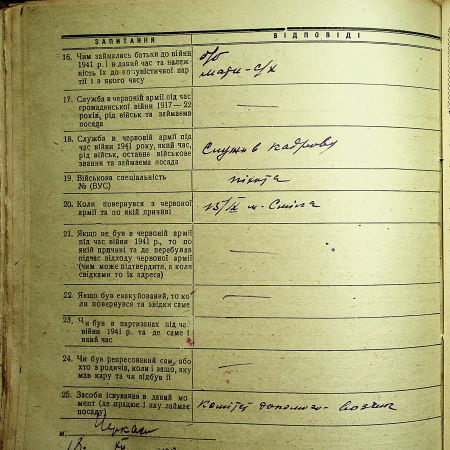 ЗАПИТАННЯ
ВІДПОВІДІ
16. Чим займались батьки до війни
1941 р. і в даний час та належ-
ність їх до комуністичної пар-
тії і з якого часу
б/п
мати - с/х
17. Служба в червоній армії під час
громадянської війни 1917 — 22
років, рід військ та займаєма
посада
18. Служба в червоній армії під
час війни 1941 року, який час,
рід військ, останнє військове
звання та займаєма посада
Служив кадрову
19. Військова спеціальність
№ (ВУС)
піхота
20. Коли повернувся з червоної
армії та по якій причині
15/IX м. Сміла
21. Якщо не був в червоній армії
під час війни 1941 р., то по
якій причині та де перебував
підчас відходу червоної армії
(чим може підтвердити, а коли
свідками то їх адреса)
22. Якщо був евакуйований, то ко-
ли повернувся та звідки саме
23. Чи був в партизанах під час
війни 1941 р. та де саме і
який час
24. Чи був репресований сам, або
хто з родичів, коли і защо, яку
мав кару та чи відбув її
25. Засоби існування в даний мо-
мент (де працює і яку займає
посаду)
Комітет допомоги
м. Черкаси